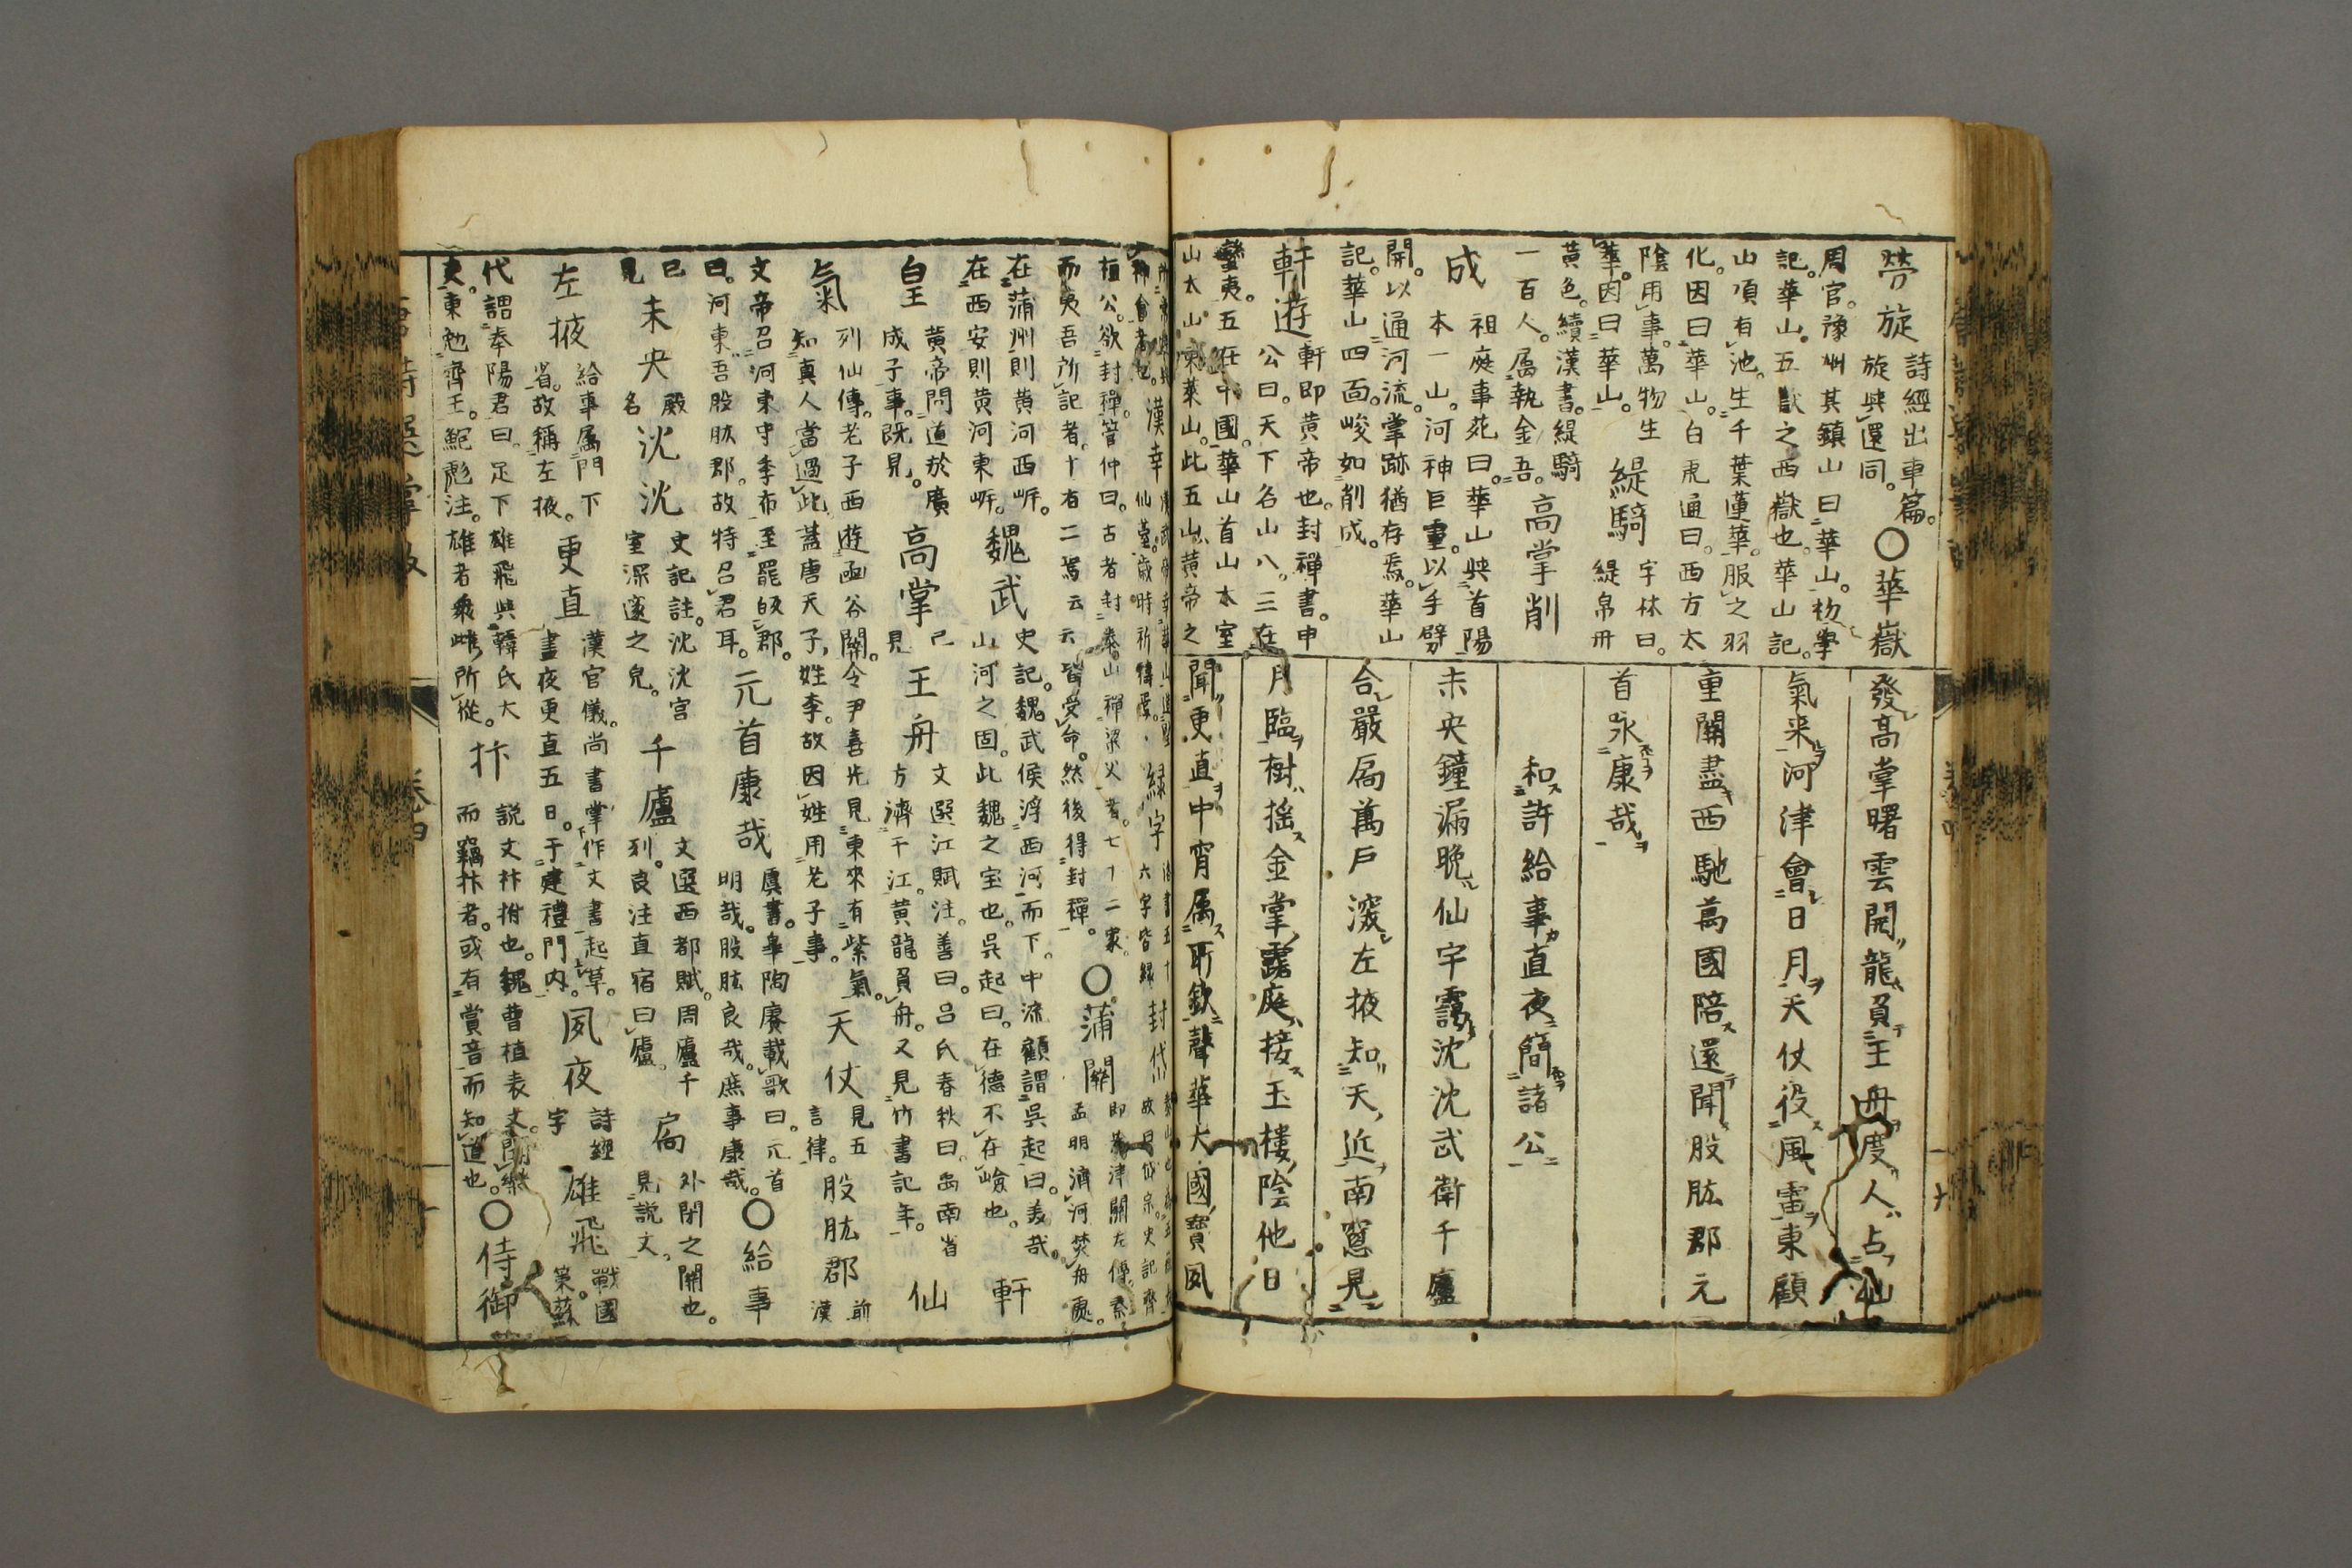 勞旋
詩經出車篇。
旋與還同。
〇華嶽
周官。豫州其鎮山曰華山。初學
記。華山。五嶽之西嶽也。華山記。
山頂有池。生千葉蓮華。服之羽
化。因曰華山。白虎通曰。西方太
陰用事。萬物生
華。因曰華山。
緹騎
字林曰。
緹帛丹
黃色。續漢書。緹騎
一百人。屬執金吾。
高掌削
成
祖庭事苑曰。華山與首陽
本一山。河神巨靈。以手劈
開。以通河流。掌跡猶存焉。華山
記。華山四面。峻如削成。
軒遊
軒即黃帝也。封禪書。申
公曰。天下名山八。三在
蠻夷。五在中國。華山首山太室
山太山東萊山。此五山黃帝之
發高掌曙雲開龍負王舟度人占仙
氣来河津會日月天仗役風雷東顧
重關盡西馳萬國陪還聞股肱郡元
首永康哉
和許給事直夜簡諸公
未央鐘漏晩仙宇靄沈沈武衛千廬
合嚴扃萬戶深左掖知天近南窓見
月臨樹搖金掌露庭接玉樓陰他日
聞更直中宵属所欽聲華大國寶夙
漢幸
緑字
六字皆緑
封岱
桓公。欲封禪。管仲曰。古者封泰山禪梁父者。七十二家。
而夷吾所記者。十有二焉云云皆受命。然後得封禪。
〇蒲關
即蒲津關左傳秦
孟明濟河焚舟處。
在蒲州則黃河西岍。
在西安則黃河東岍。
魏武
史記。魏武侯浮西河而下。中流顧謂吳起曰。美哉。
山河之固。此魏之宝也。吳起曰。在德不在嶮也。
軒
皇
黃帝問道於廣
成子事。既見。
高掌
已
見
王舟
文選江賦注。善曰。呂氏春秋曰。禹南省
方濟于江。黃龍負舟。又見竹書記年。
仙
氣
列仙傳。老子西遊函谷關。令尹喜先見東來有紫氣。
知真人當過此蓋唐天子姓李。故因姓用老子事。
天仗
見五
言律。
股肱郡
前
漢
文帝召河東守季布至罷皈郡。
曰。河東吾股肱郡。故特召君耳。
元首康哉
虞書。皐陶賡載歌曰。元首
明哉。股肱良哉。庶事康哉。
〇給事
已
見
未央
殿
名
沈沈
史記註。沈沈宮
室深邃之皃。
千廬
文選西都賦。周廬千
列。良注直宿曰廬。
扃
外閉之關也。
見說文。
左掖
給事属門下
省。故稱左掖。
更直
漢官儀。尚書掌作文書起草。
晝夜更直五日。于建禮門内。
夙夜
詩經
字
雄飛
戰國
策。蘇
代謂奉陽君曰。足下雄飛與韓氏大
吏。東勉齊王。鮑彪注。雄者衆雌所從。
抃
説文抃拊也。魏曹植表文。聞樂
而竊抃者。或有賞音而知道也。
〇侍御